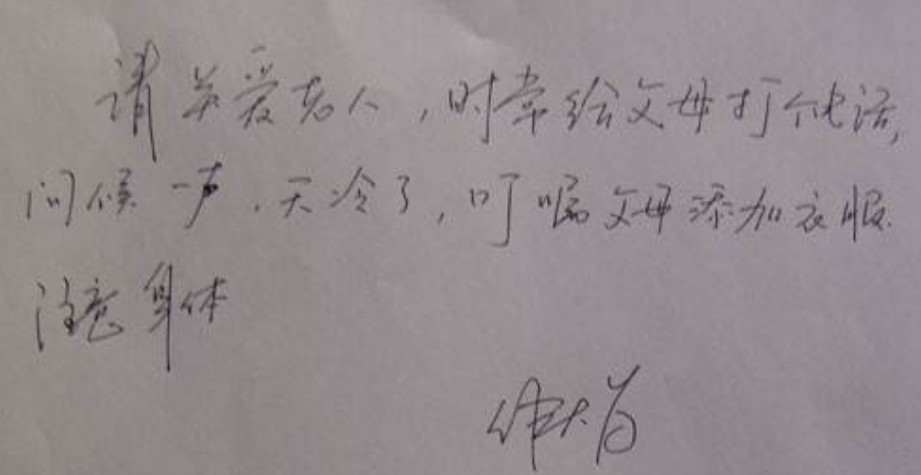 请关爱老人,时常给父母打个电话,
问候一声.天冷了,叮嘱父母添加衣服.
注意身体